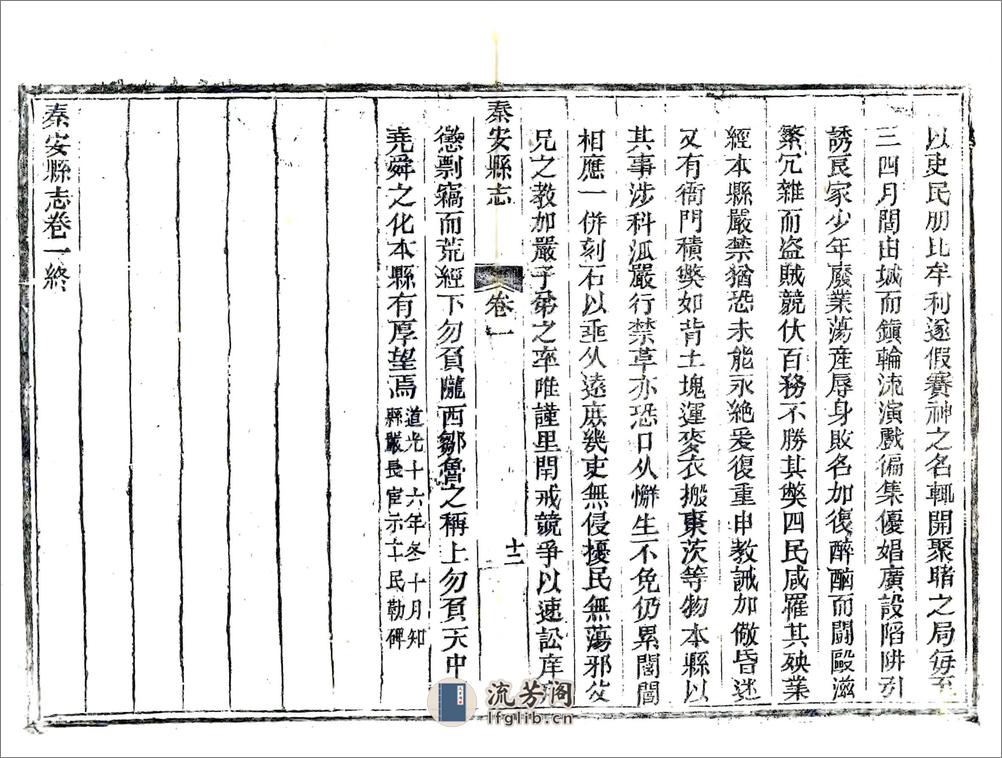 以吏民朋比牟利遂假賽神之名輒開聚賭之局每至
三四月間由城而鎮輪流演戲徧集優娼廣設陷阱引
誘良家少年廢業蕩產辱身敗名加復醉酗而鬬毆滋
繁冗雜而盗賊競伏百務不勝其獘四民咸罹其殃業
經本縣嚴禁猶恐未能永絕爰復重申教誡加儆昏迷
又有衙門積獘如背土塊運麥衣搬棗茨等物本縣以
其事涉科派嚴行禁草亦恐日久懈生不免仍累閭閻
相應一併刻石以垂久遠庶幾吏無侵擾民無蕩邪父
兄之教加嚴子弟之率唯謹里閈戒競爭以速訟庠
秦安縣志
卷一
十二
懲剽竊而荒經下勿負隴西鄒魯之稱上勿負天中
堯舜之化本縣有厚望焉
道光十六年冬十月知
縣嚴長宦示士民勒碑
秦安縣志卷一終
流芳阁
lfglib.cn